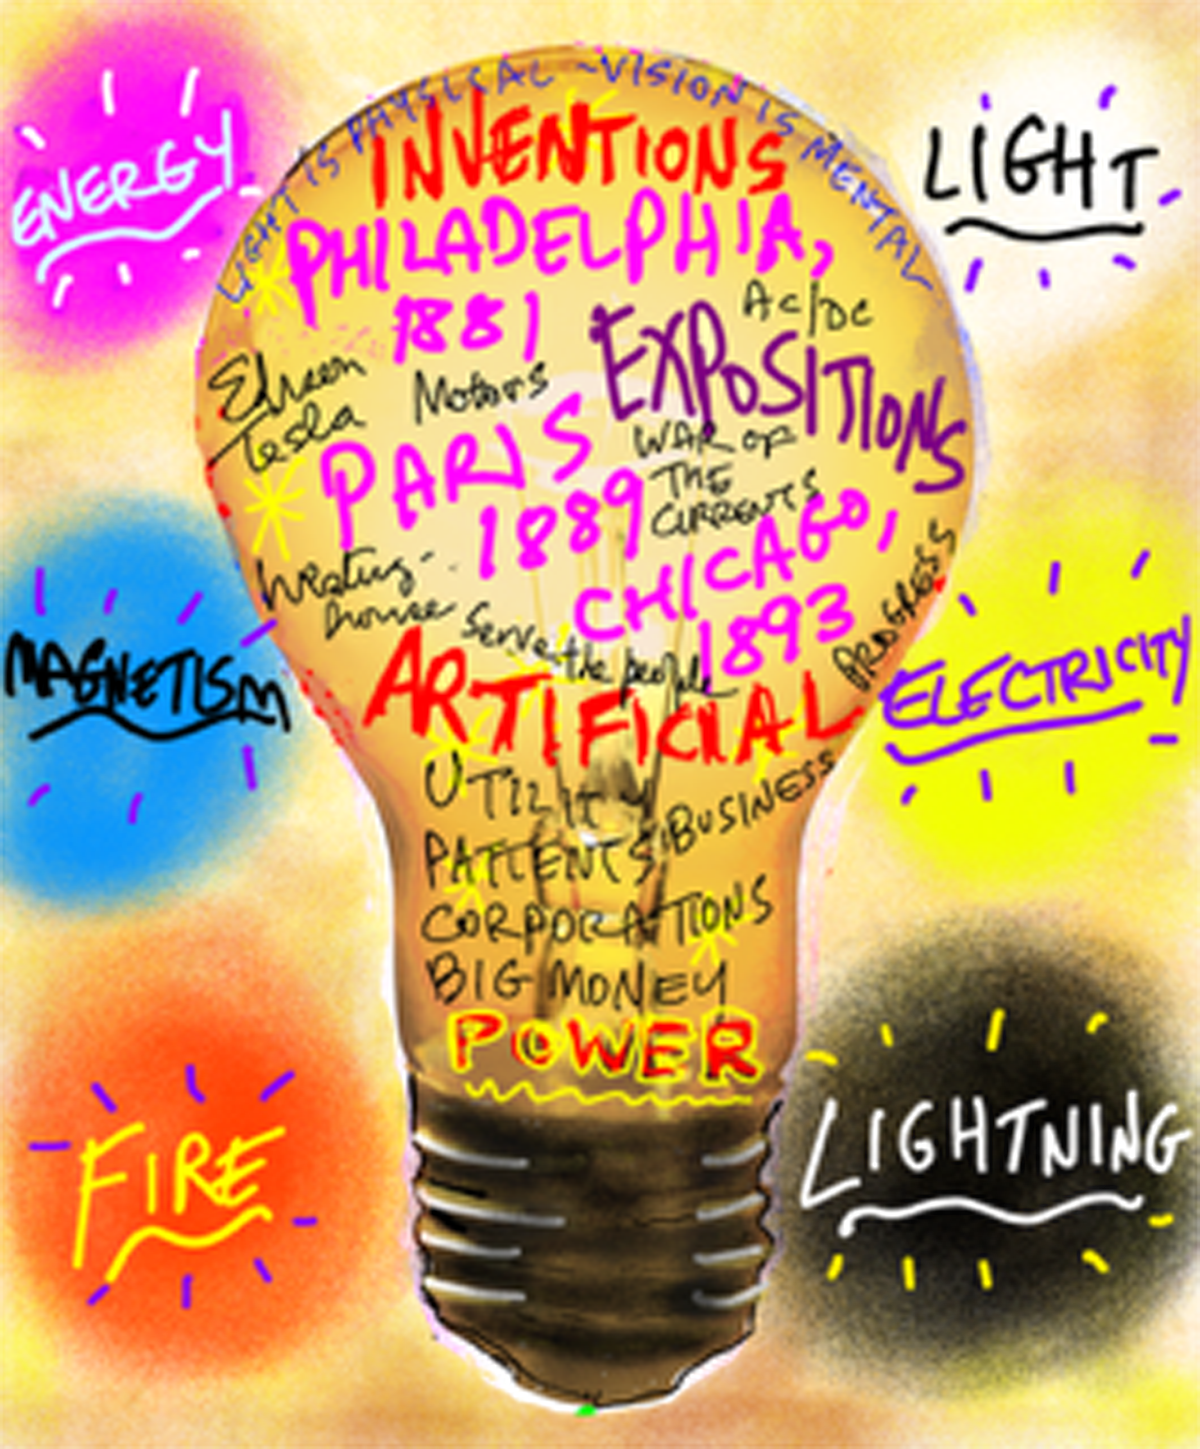 LIGHT IS PHYSICAL ~ VISION IS MENTAL
ENERGY
LIGHT
INVENTIONS
PHILADELPHIA,
1881
AC/DC
EXPOSITIONS
Tesla
Motors
PARIS
1889
WAR OF
THE
CURRENTS
CHICAGO,
1893
Westing-
house
Serve the people
PROGRESS
MAGNETISM
ELECTRICITY
ARTIFICIAL
UTILITY
PATTENTS
BUSINESS
CORPORATIONS
BIG MONEY
POWER
FIRE
LIGHTNING